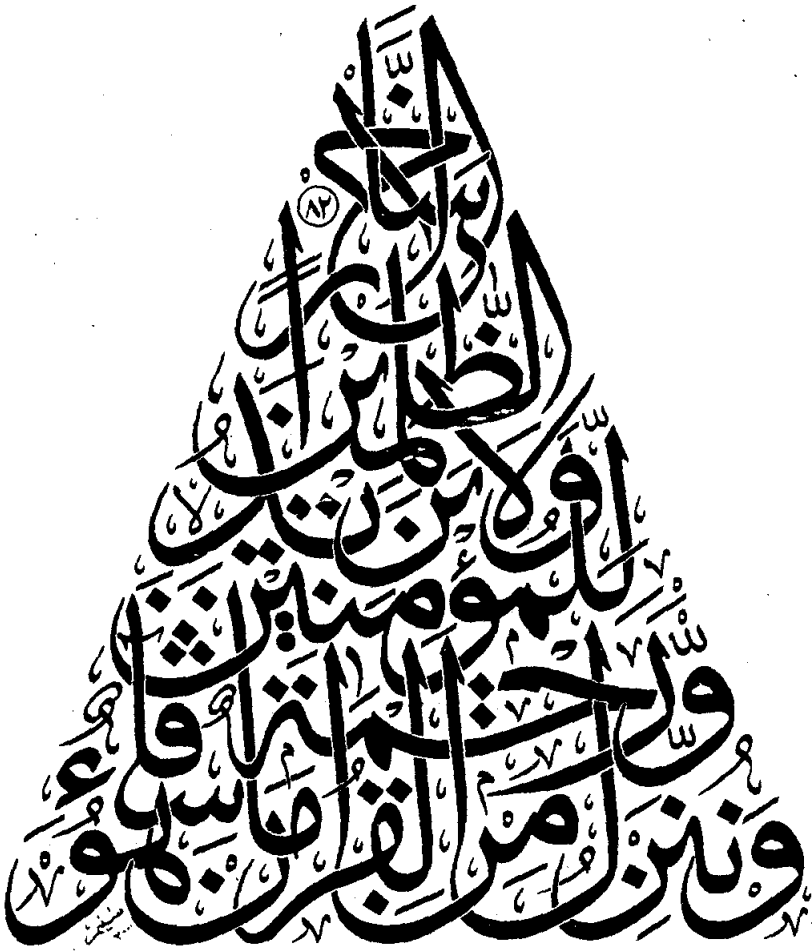 وَنُنَزِّلُ مِنَ الْقُرْاٰنِ مَا هُوَ شِفَآءٌ
وَّرَحْمَةٌ
لِّلْمُؤْمِنِيْنَ
وَلَا يَزِيْدُ
الظّٰلِمِيْنَ
اِلَّا خَسَارًا ٨٢